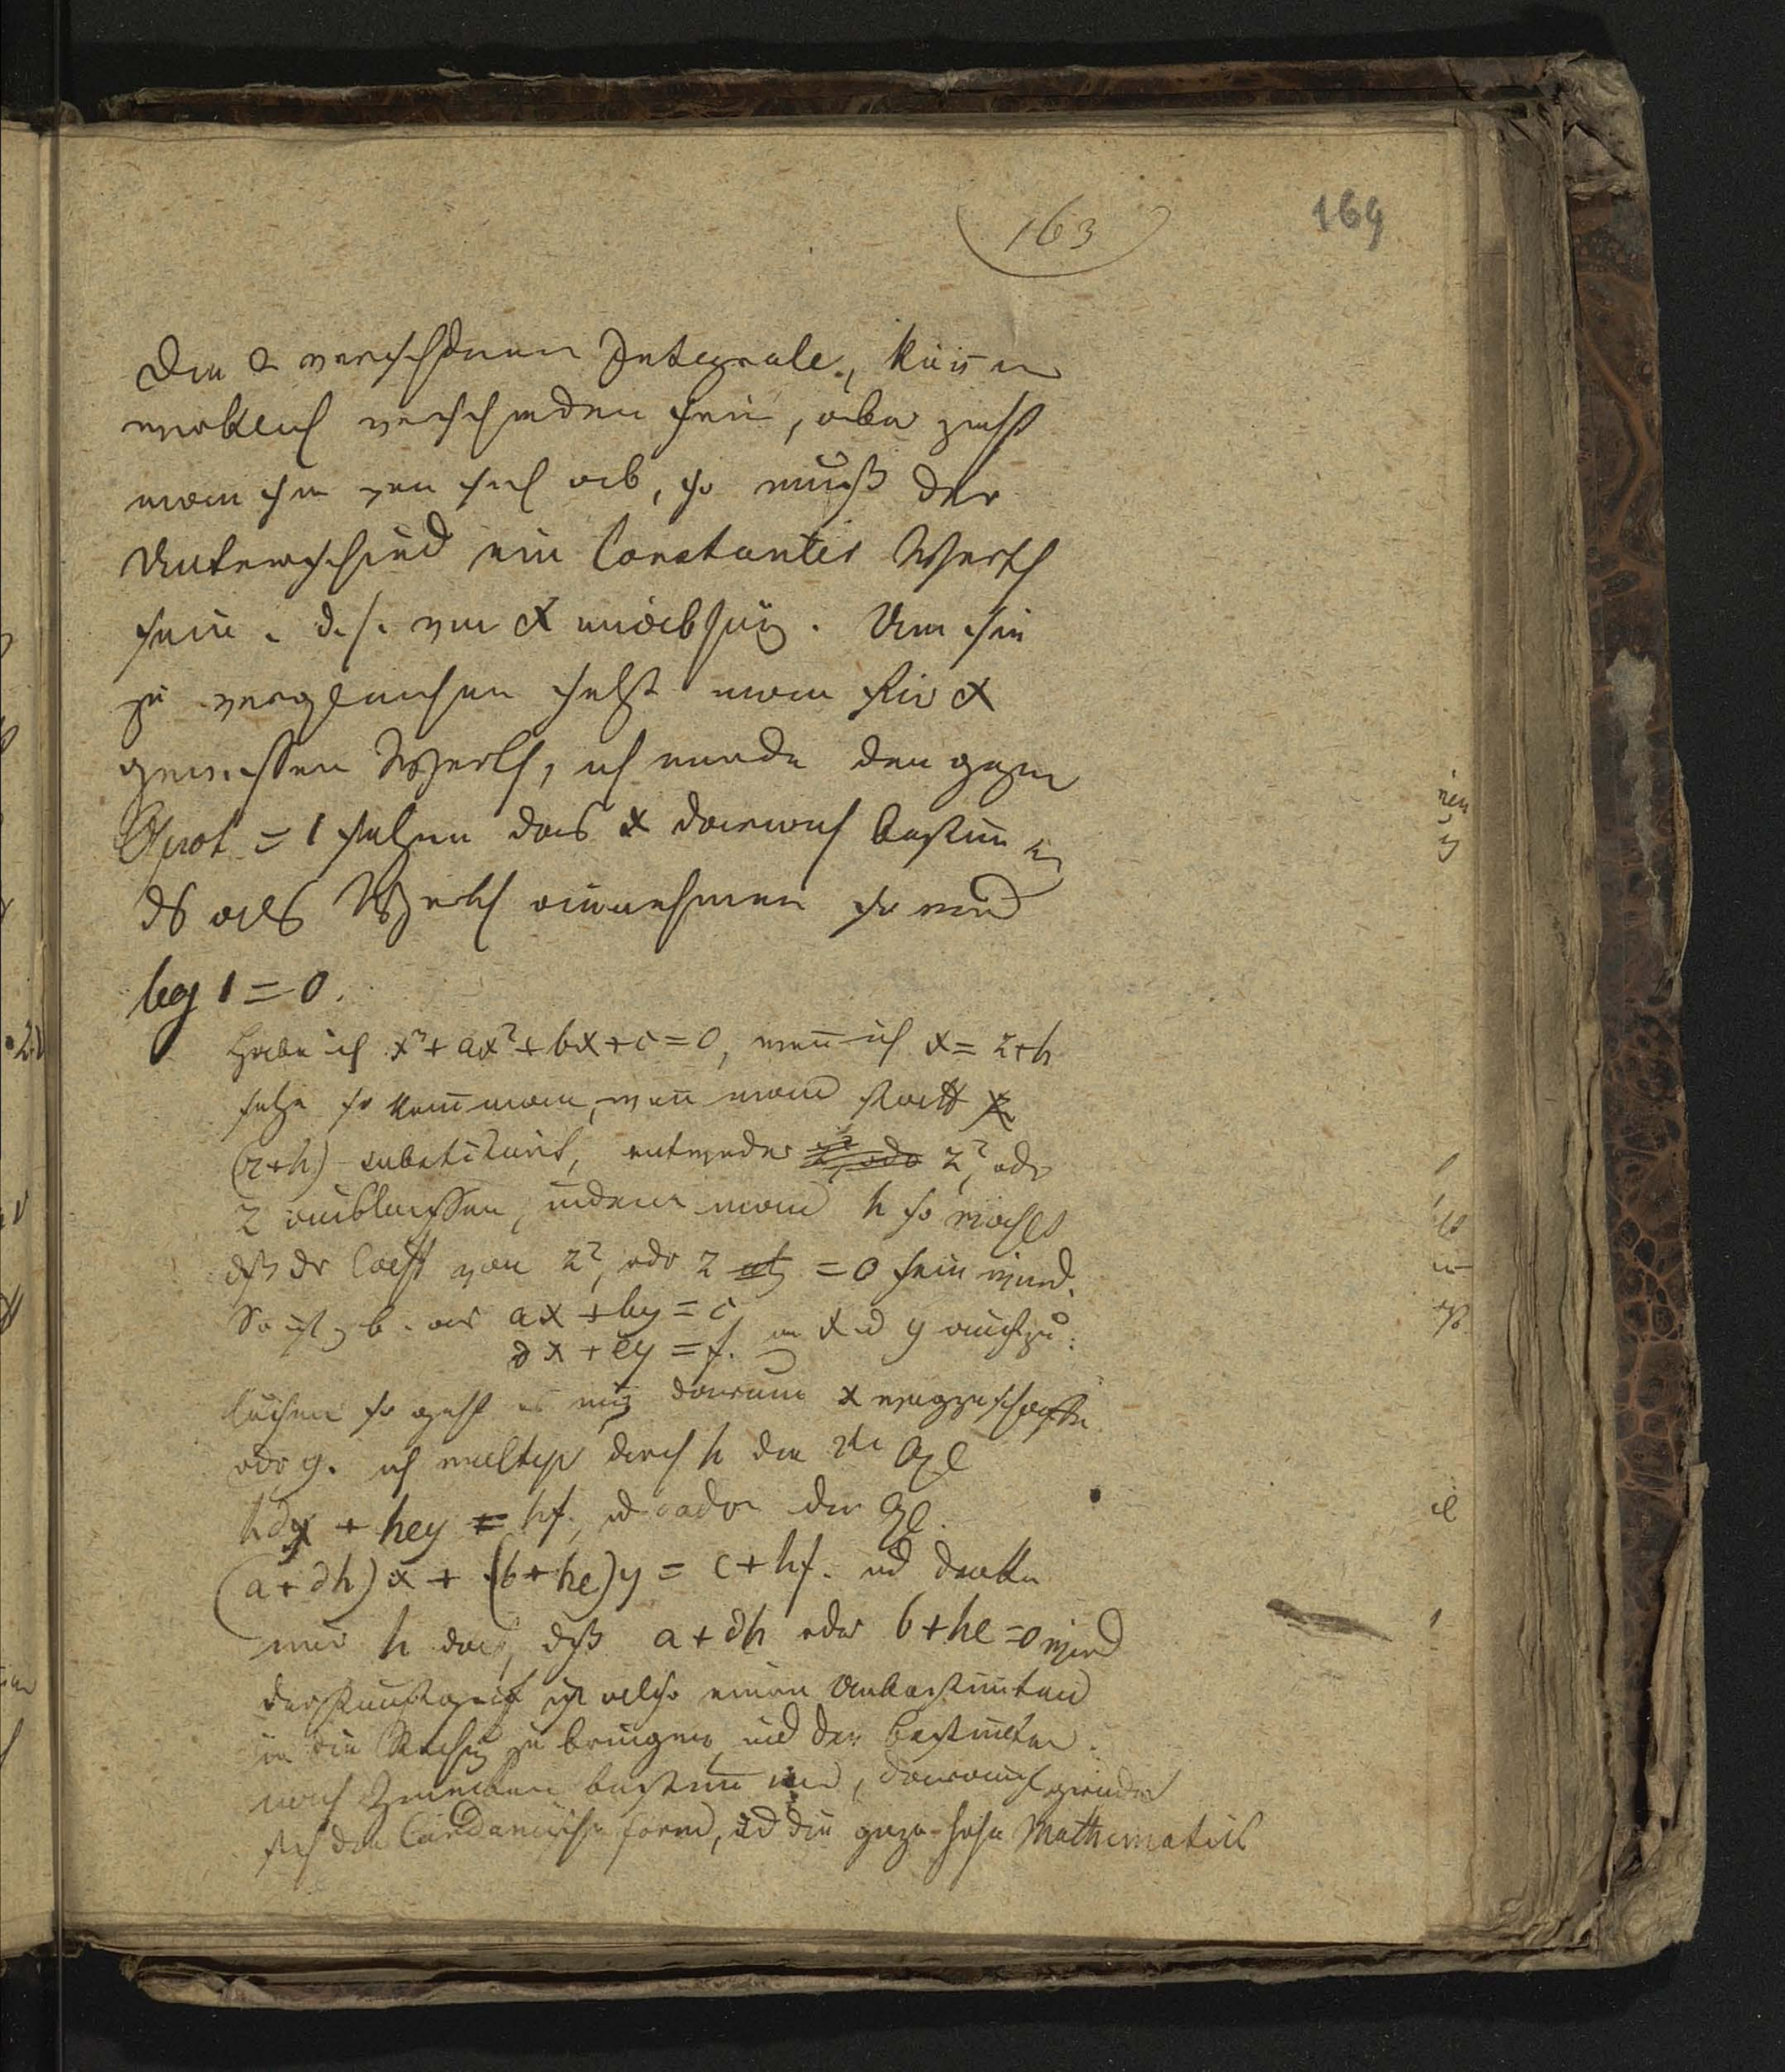 163
169
Die 2 verschidnen Integrale, könen
wirklich verschieden sein, aber zieht
man sie von sich ab, so muß der
Unterschied ein Constanter Werth
sein. d.h. von x unabhäng. Um sie
zu vergleichen setzt man für x
gewissen Werth, ich werde den ganzen
Quot = 1 setzen das x daraus bestimen
ds als Werth annehmen so wird
log 1 = 0.
Habe ich x³ + ax² + bx + c = 0, wenn ich x = z+h
setze so kann man, wenn man statt x
(z+h) substituirt, entweder z², oder
z ausblassen, indem man h so wählt
dß dr Coeff von z², oder z = 0 sein wird.
So ist z. b. aus ax + by = c
dx + ey = f. x ud y aufzu:
suchen so geht es nur darum x wegzuschaffen
oder y. ich multip durch h die 2te Gl
hdx + hey = hf, ud addir die Gl.
(a+dh)x + (b+he)y = c+hf. ud denke
mir h das, dß a+dh oder b+he=0 wird
der Kunstgrif ist also einen Unbestimten
in die Rechng zu bringen und den bestimten
nach Zwecken bestimen, darauf gründet
sich die Cardanische form, ud die ganze hohe Mathematick